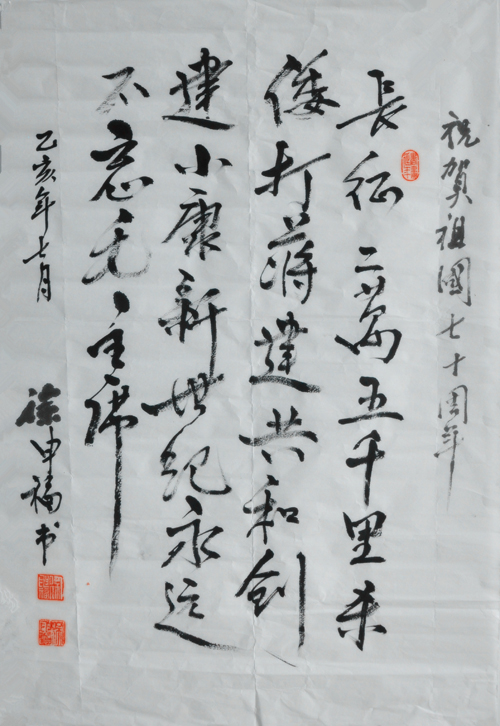 祝賀祖國七十周年
長征二萬五千里杀
倭打蒋建共和创
建小康新世纪永远
不忘毛主席
乙亥年七月
徐申福书